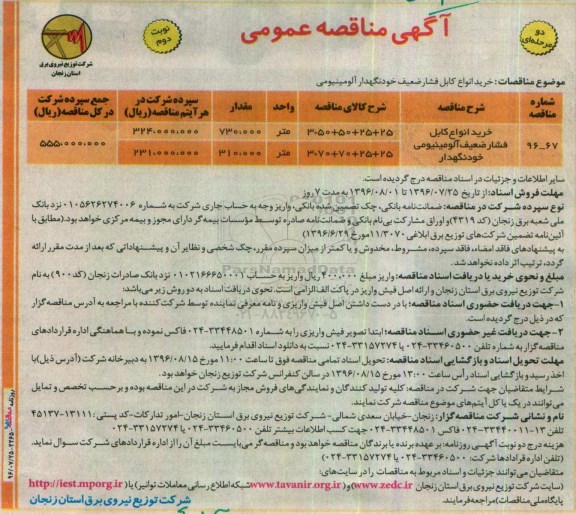 آگهی مناقصه عمومی
دو مرحله‌ای
نوبت دوم
شرکت توزیع نیروی برق
استان زنجان
موضوع مناقصات: خرید انواع کابل فشار ضعیف خودنگهدار آلومینیومی
شماره مناقصه شرح مناقصه شرح کالای مناقصه واحد مقدار سپرده شرکت در هر آیتم مناقصه (ریال) جمع سپرده شرکت در کل مناقصه (ریال)
۹۶-۶۷ خرید انواع کابل فشار ضعیف آلومینیومی خودنگهدار ۳×۵۰+۵۰+۲۵+۲۵ متر ۷۳۰،۰۰۰ ۳۲۴،۰۰۰،۰۰۰ ۵۵۵،۰۰۰،۰۰۰
۳×۷۰+۷۰+۲۵+۲۵ متر ۳۱۰،۰۰۰ ۲۳۱،۰۰۰،۰۰۰
سایر اطلاعات و جزئیات در اسناد مناقصه درج گردیده است.
مهلت فروش اسناد: از تاریخ ۱۳۹۶/۰۷/۲۵ تا ۱۳۹۶/۰۸/۰۱ به مدت ۷ روز
نوع سپرده شرکت در مناقصه: ضمانت‌نامه بانکی، چک تضمین شده بانکی، واریز وجه به حساب جاری شرکت به شماره ۰۱۰۵۶۲۶۲۷۴۰۰۶ نزد بانک
ملی شعبه برق زنجان (کد ۴۳۱۹) و اوراق مشارکت بی‌نام بانکی و ضمانت‌نامه صادره توسط مؤسسات بیمه‌گر دارای مجوز و بیمه مرکزی خواهد بود. (مطابق با
آئین‌نامه تضمین شرکت‌های توزیع برق ابلاغی ۱۱/۳۰۷۰ مورخ ۱۳۹۶/۶/۲۹)
به پیشنهادهای فاقد امضاء، فاقد سپرده، مشروط، مخدوش و یا کمتر از میزان سپرده مقرر، چک شخصی و نظایر آن و پیشنهاداتی که بعد از مدت مقرر ارائه
گردد، ترتیب اثر داده نخواهد شد.
مبلغ و نحوی خرید یا دریافت اسناد مناقصه: واریز مبلغ ۴۰۰،۰۰۰ ریال واریز به حساب نزد بانک صادرات زنجان (کد ۹۰۰) به نام
شرکت توزیع نیروی برق استان زنجان و ارائه اصل فیش واریز در پاکت الف الزامی است. نحوی دریافت اسناد به دو روش زیر می‌باشد:
۱- جهت دریافت حضوری اسناد مناقصه: با در دست داشتن اصل فیش واریزی و نامه معرفی نماینده توسط شرکت کننده با مراجعه به آدرس مناقصه‌گزار
که در ذیل درج گردیده است.
۲- جهت دریافت غیر حضوری اسناد مناقصه: ابتدا تصویر فیش واریزی را به شماره ۳۳۴۴۸۵۰۱-۰۲۴ فاکس نموده و با هماهنگی اداره قراردادهای
مناقصه گزار به شماره تلفن ۳۳۴۶۰۵۰۰-۰۲۴ یا ۳۳۱۵۷۲۷۴-۰۲۴ نسبت به دانلود اسناد اقدام فرمایید.
مهلت تحویل اسناد و بازگشایی اسناد مناقصه: تحویل اسناد تمامی مناقصه فوق تا ساعت ۱۱:۰۰ مورخ ۱۳۹۶/۰۸/۱۵ به دبیرخانه شرکت (آدرس ذیل) با
اخذ رسید و بازگشایی اسناد رأس ساعت ۱۳:۰۰ مورخ ۱۳۹۶/۰۸/۱۵ در سالن کنفرانس شرکت توزیع زنجان خواهد بود.
شرایط متقاضیان جهت شرکت در مناقصه: کلیه تولید کنندگان و نمایندگی‌های فروش مجاز به شرکت در این مناقصه بوده و بر حسب تخصص و تمایل
می‌توانند در یک یا کل آیتم‌های موضوع مناقصه شرکت نمایند.
نام و نشانی شرکت مناقصه گزار: زنجان-خیابان سعدی شمالی- شرکت توزیع نیروی برق استان زنجان-امور تدارکات-کد پستی: ۱۳۱۱۱-۴۵۱۳۷
تلفن ۱۳-۳۳۴۴۰۰۱۱-۰۲۴ فاکس ۳۳۴۴۸۵۰۱-۰۲۴ جهت کسب اطلاعات بیشتر تلفن ۳۳۴۶۰۵۰۰-۰۲۴ یا ۳۳۱۵۷۲۷۴-۰۲۴
هزینه درج دو نوبت آگهی روزنامه: بر عهده برنده یا برندگان مناقصه خواهد بود و مناقصه گر می‌بایست مبلغ آن را از اداره قراردادهای شرکت سوال نماید.
(تلفن اداره قراردادها شرکت: ۳۳۴۶۰۵۰۰-۰۲۴ یا ۳۳۱۵۷۲۷۴-۰۲۴)
متقاضیان می‌توانند جزئیات و اسناد مربوط به مناقصات را در سایت‌های:
(سایت شرکت توزیع نیروی برق استان زنجان www.zedc.ir) و (www.tavanir.org.ir شبکه اطلاع رسانی معاملات توانیر) یا (http://iest.mporg.ir
پایگاه ملی مناقصات) مراجعه فرمایند.
شرکت توزیع نیروی برق استان زنجان